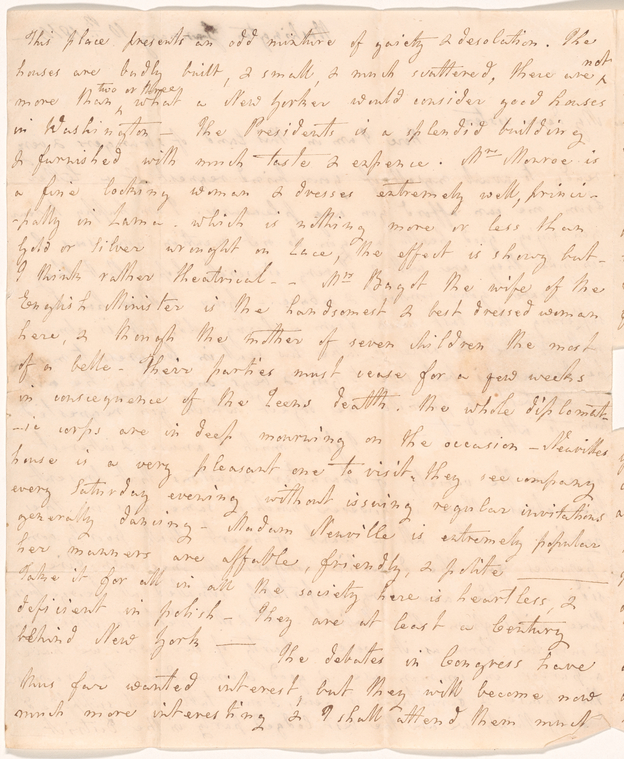 This place presents an odd mixture of gaiety & desolation. The
houses are badly built, & small, & much scattered, there are not
more than two or three what a New Yorker would consider good houses
in Washington - The Presidents is a splendid building
& furnished with much taste & expence. Mrs Monroe is
a fine looking woman & dresses extremely well, princi-
-pally in Lama - which is nothing more or less than
Gold or silver wrought on Lace, the effect is showy but -
I think rather theatrical - - Mrs Bagot the wife of the
English Minister is the handsomest & best dressed woman
here, & though the mother of seven children the most
of a belle - Their parties must cease for a few weeks
in consequence of the Queens death. The whole diplomat-
-ic corps are in deep mourning on the occasion - Neuvilles
house is a very pleasant one to visit, they see company
every Saturday evening without issuing regular invitations
generally dancing - Madam Neuville is extremely popular
her manners are affable, friendly, & polite
Take it for all in all the society here is heartless, &
deficient in polish - They are at least a Century
behind New York - The debates in Congress have
thus far wanted interest, but they will become now
much more interesting & I shall attend them much